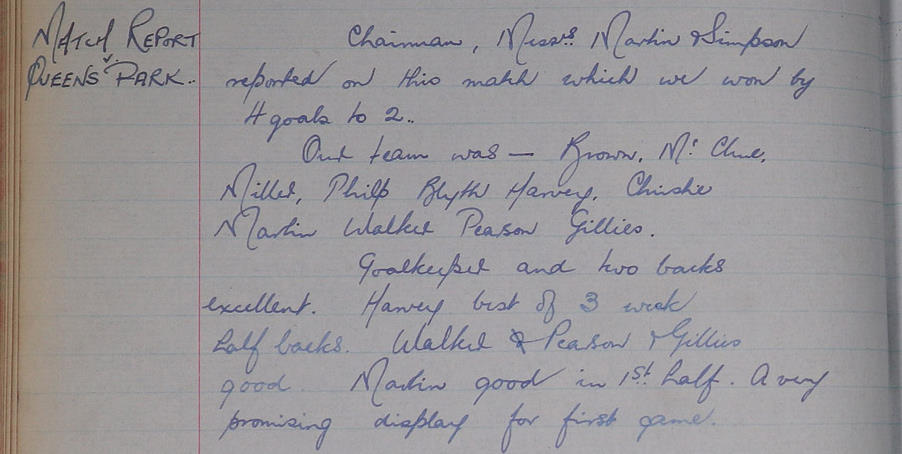 MATCH REPORT
v.
QUEENS PARK.
Chairman, Messrs Martin & Simpson
reported on this match which we won by
4 goals to 2..
Our team was — Brown, Mc Clue,
Miller, Philp Blyth Harvey, Christie
Martin Walker Pearson Gillies.
Goalkeeper and two backs
excellent. Harvey best of 3 weak
half backs. Walker & Pearson & Gillies
good. Martin good in 1st half. A very
promising display for first game.